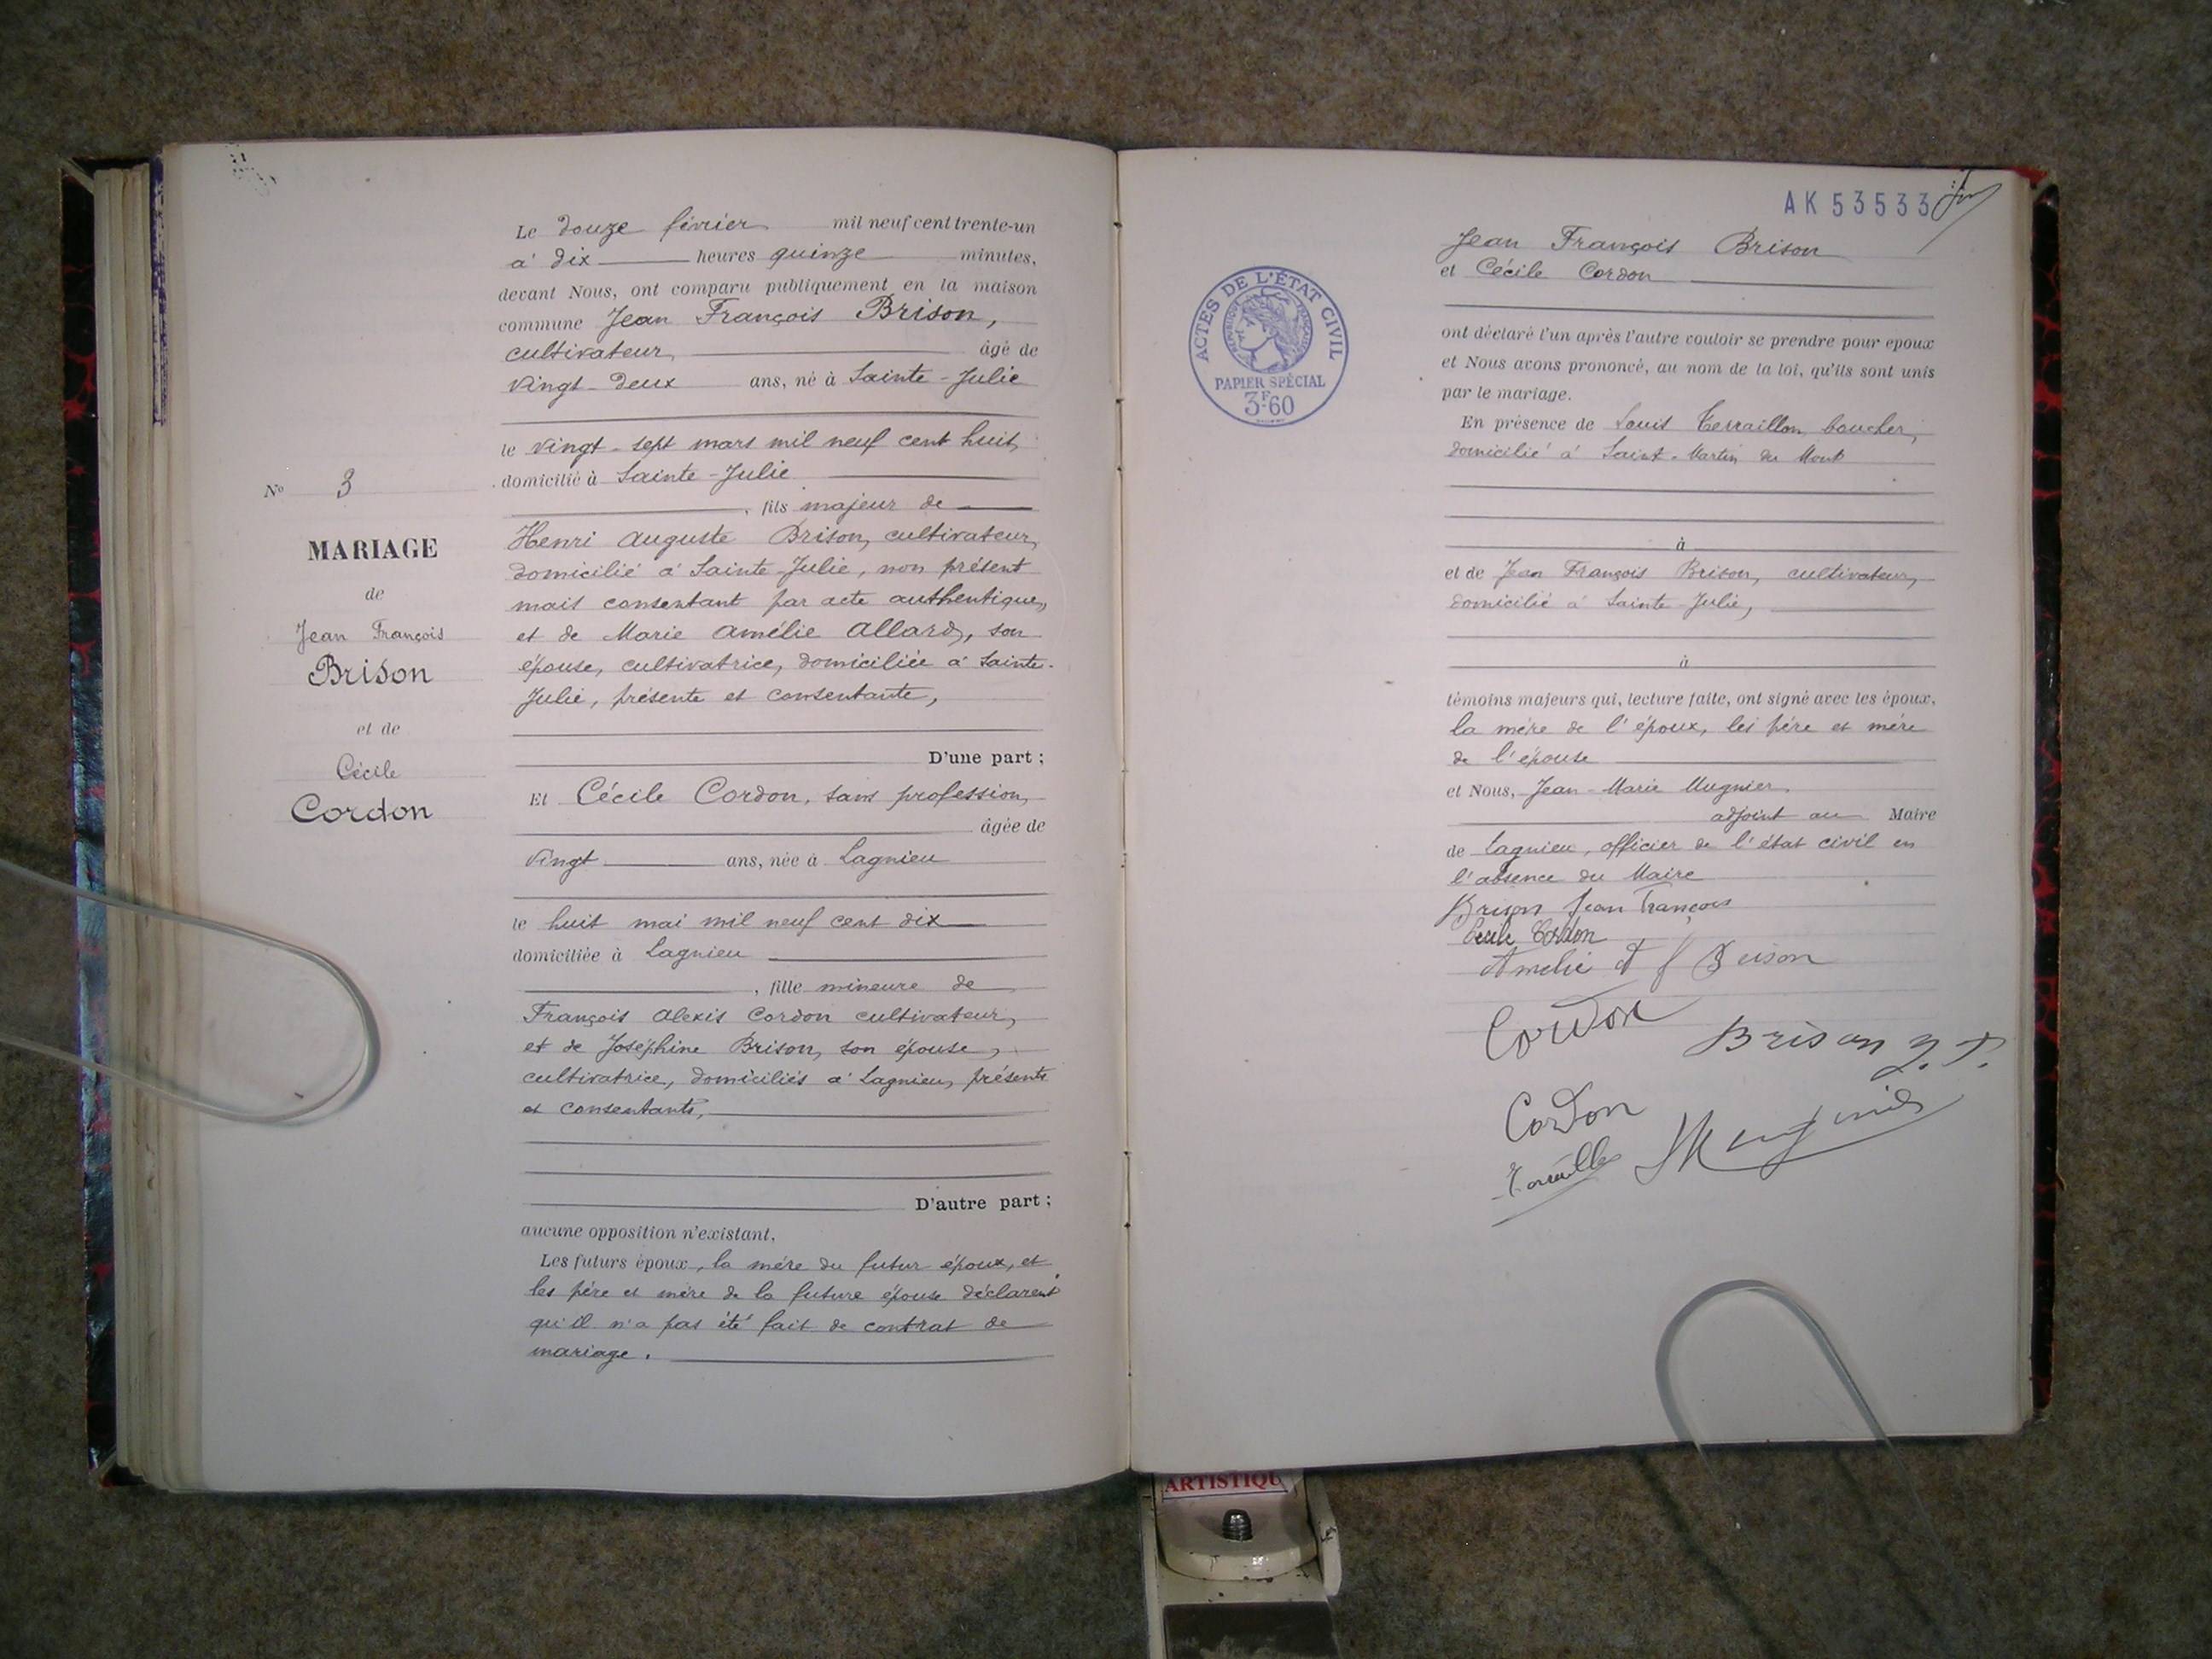 Le douze février mil neuf cent trente-un
à dix heures quinze minutes,
devant Nous, ont comparu publiquement en la maison
commune Jean François Brison,
cultivateur, âgé de
vingt-deux ans, né à Sainte-Julie
le vingt-sept mars mil neuf cent huit,
domicilié à Sainte-Julie
, fils majeur de
Henri Auguste Brison, cultivateur,
domicilié à Sainte-Julie, non présent
mais consentant par acte authentique,
et de Marie Amélie Allard, son
épouse, cultivatrice, domiciliée à Sainte-
Julie, présente et consentante,
D'une part ;
Et Cécile Cordon, sans profession,
âgée de
vingt ans, née à Lagnieu
le huit mai mil neuf cent dix
domiciliée à Lagnieu
, fille mineure de
François Alexis Cordon cultivateur,
et de Joséphine Brison, son épouse,
cultivatrice, domiciliés à Lagnieu, présents
et consentants,
D'autre part ;
aucune opposition n'existant.
Les futurs époux, la mère du futur époux, et
les père et mère de la future épouse déclarent
qu'il n'a pas été fait de contrat de
mariage.
No 3
MARIAGE
de
Jean François
Brison
et de
Cécile
Cordon
AK 53533
ACTES DE L'ÉTAT CIVIL
RÉPUBLIQUE FRANÇAISE
PAPIER SPÉCIAL
3F.60
Jean François Brison
et Cécile Cordon
ont déclaré l'un après l'autre vouloir se prendre pour époux
et Nous avons prononcé, au nom de la loi, qu'ils sont unis
par le mariage.
En présence de Louis Terraillon, boucher,
domicilié à Saint-Martin du Mont
à
et de Jean François Brison, cultivateur,
domicilié à Sainte-Julie,
à
témoins majeurs qui, lecture faite, ont signé avec les époux,
la mère de l'époux, les père et mère
de l'épouse
et Nous, Jean-Marie Mugnier
adjoint au Maire
de Lagnieu, officier de l'état civil en
l'absence du Maire
Brison Jean François
Cécile Cordon
Amélie Brison
Cordon
Brison J. F.
Cordon
Mugnier
ARTISTIQU